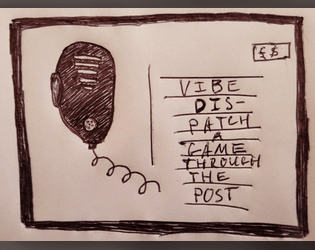 £$
VIBE
DIS-
PATCH
A
GAME
THROUGH
THE
POST